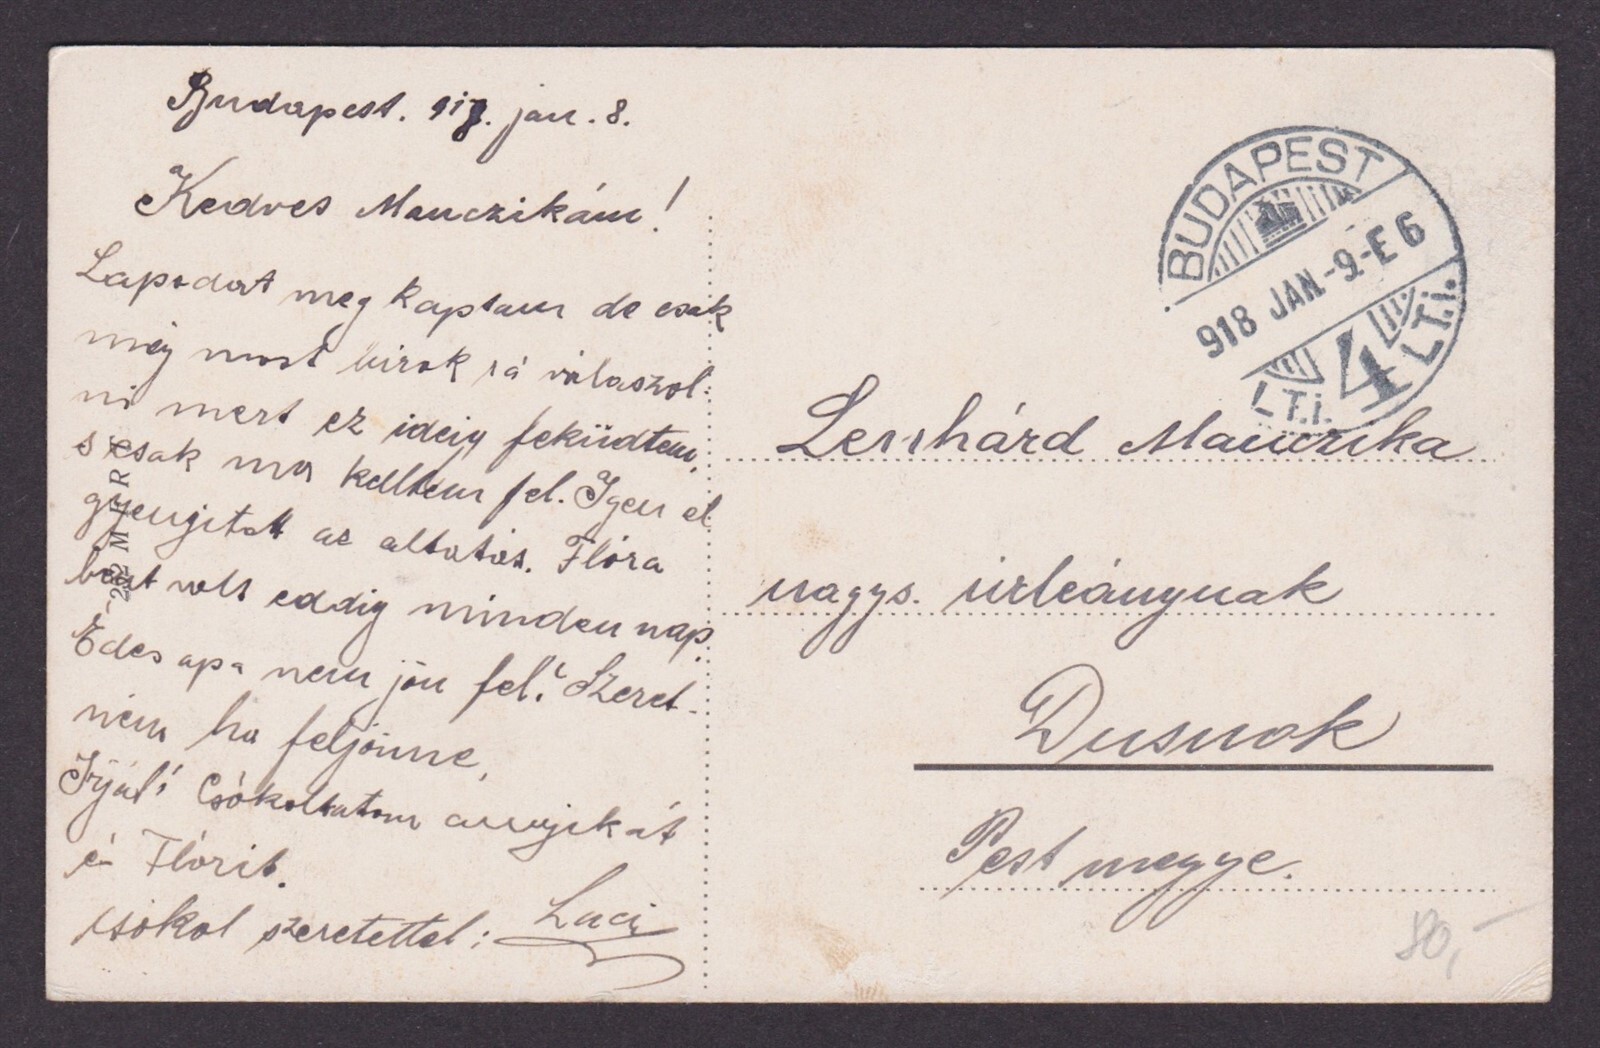 Budapest. 918. jan. 8.
Kedves Manczikám!
Lapodat meg kaptam de csak
még most birok rá válaszol-
ni mert ez ideig feküdtem,
s csak ma keltem fel. Igen el
gyengitett az altatás. Flóra
bent volt eddig minden nap.
Édes apa nem jön fel? Szeret-
ném ha feljönne,
Irjál! Csókoltatom anyjikát
é Flórit.
csókol szeretettel: Laci
BUDAPEST
918 JAN.-9.-E 6
4
L.T.i. L.T.i.
Lenhárd Manczika
nagys. úrleánynak
Dusnok
Pest megye.
80,-